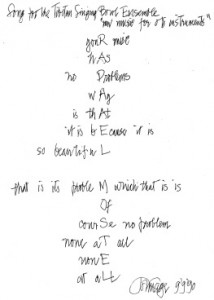 Song for the Tibetan Singing Bowl Ensemble
"new music for old instruments"
youR music
wAs
no Problems
wAy
is thAt
it is bEcause it is
so beautifuL
that is its probleM which that is is
Of
courSe no problem
none aT all
nonE
at aLL
9'9'90